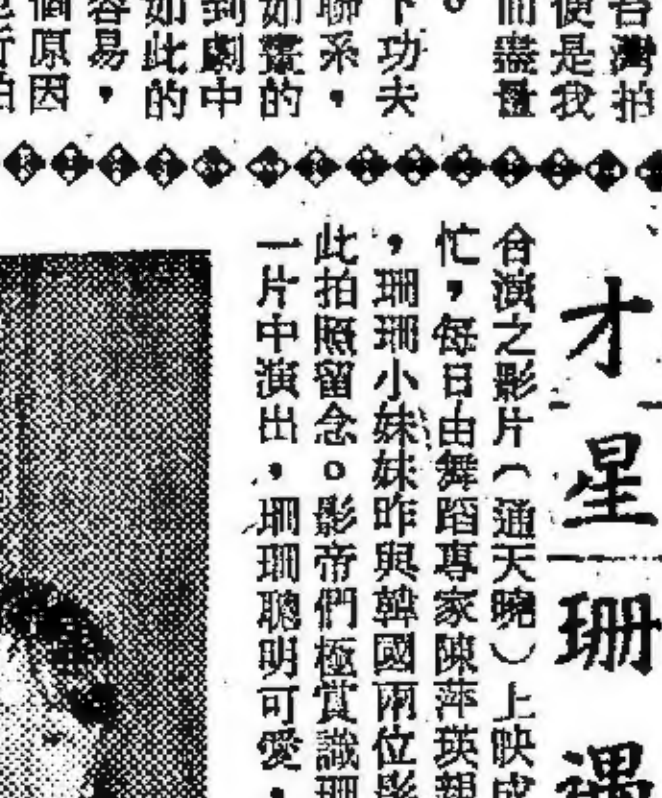 台灣拍
便是我
而盡量
。
下功夫
聯系，
如畫的
到劇中
如此的
容易，
個原因
才星珊
合演之影片（通天曉）上映
忙，每日由舞蹈專家陳萍瑛
，珊珊小妹妹昨與韓國兩位
此拍照留念。影帝們極賞識珊
一片中演出，珊珊聰明可愛，